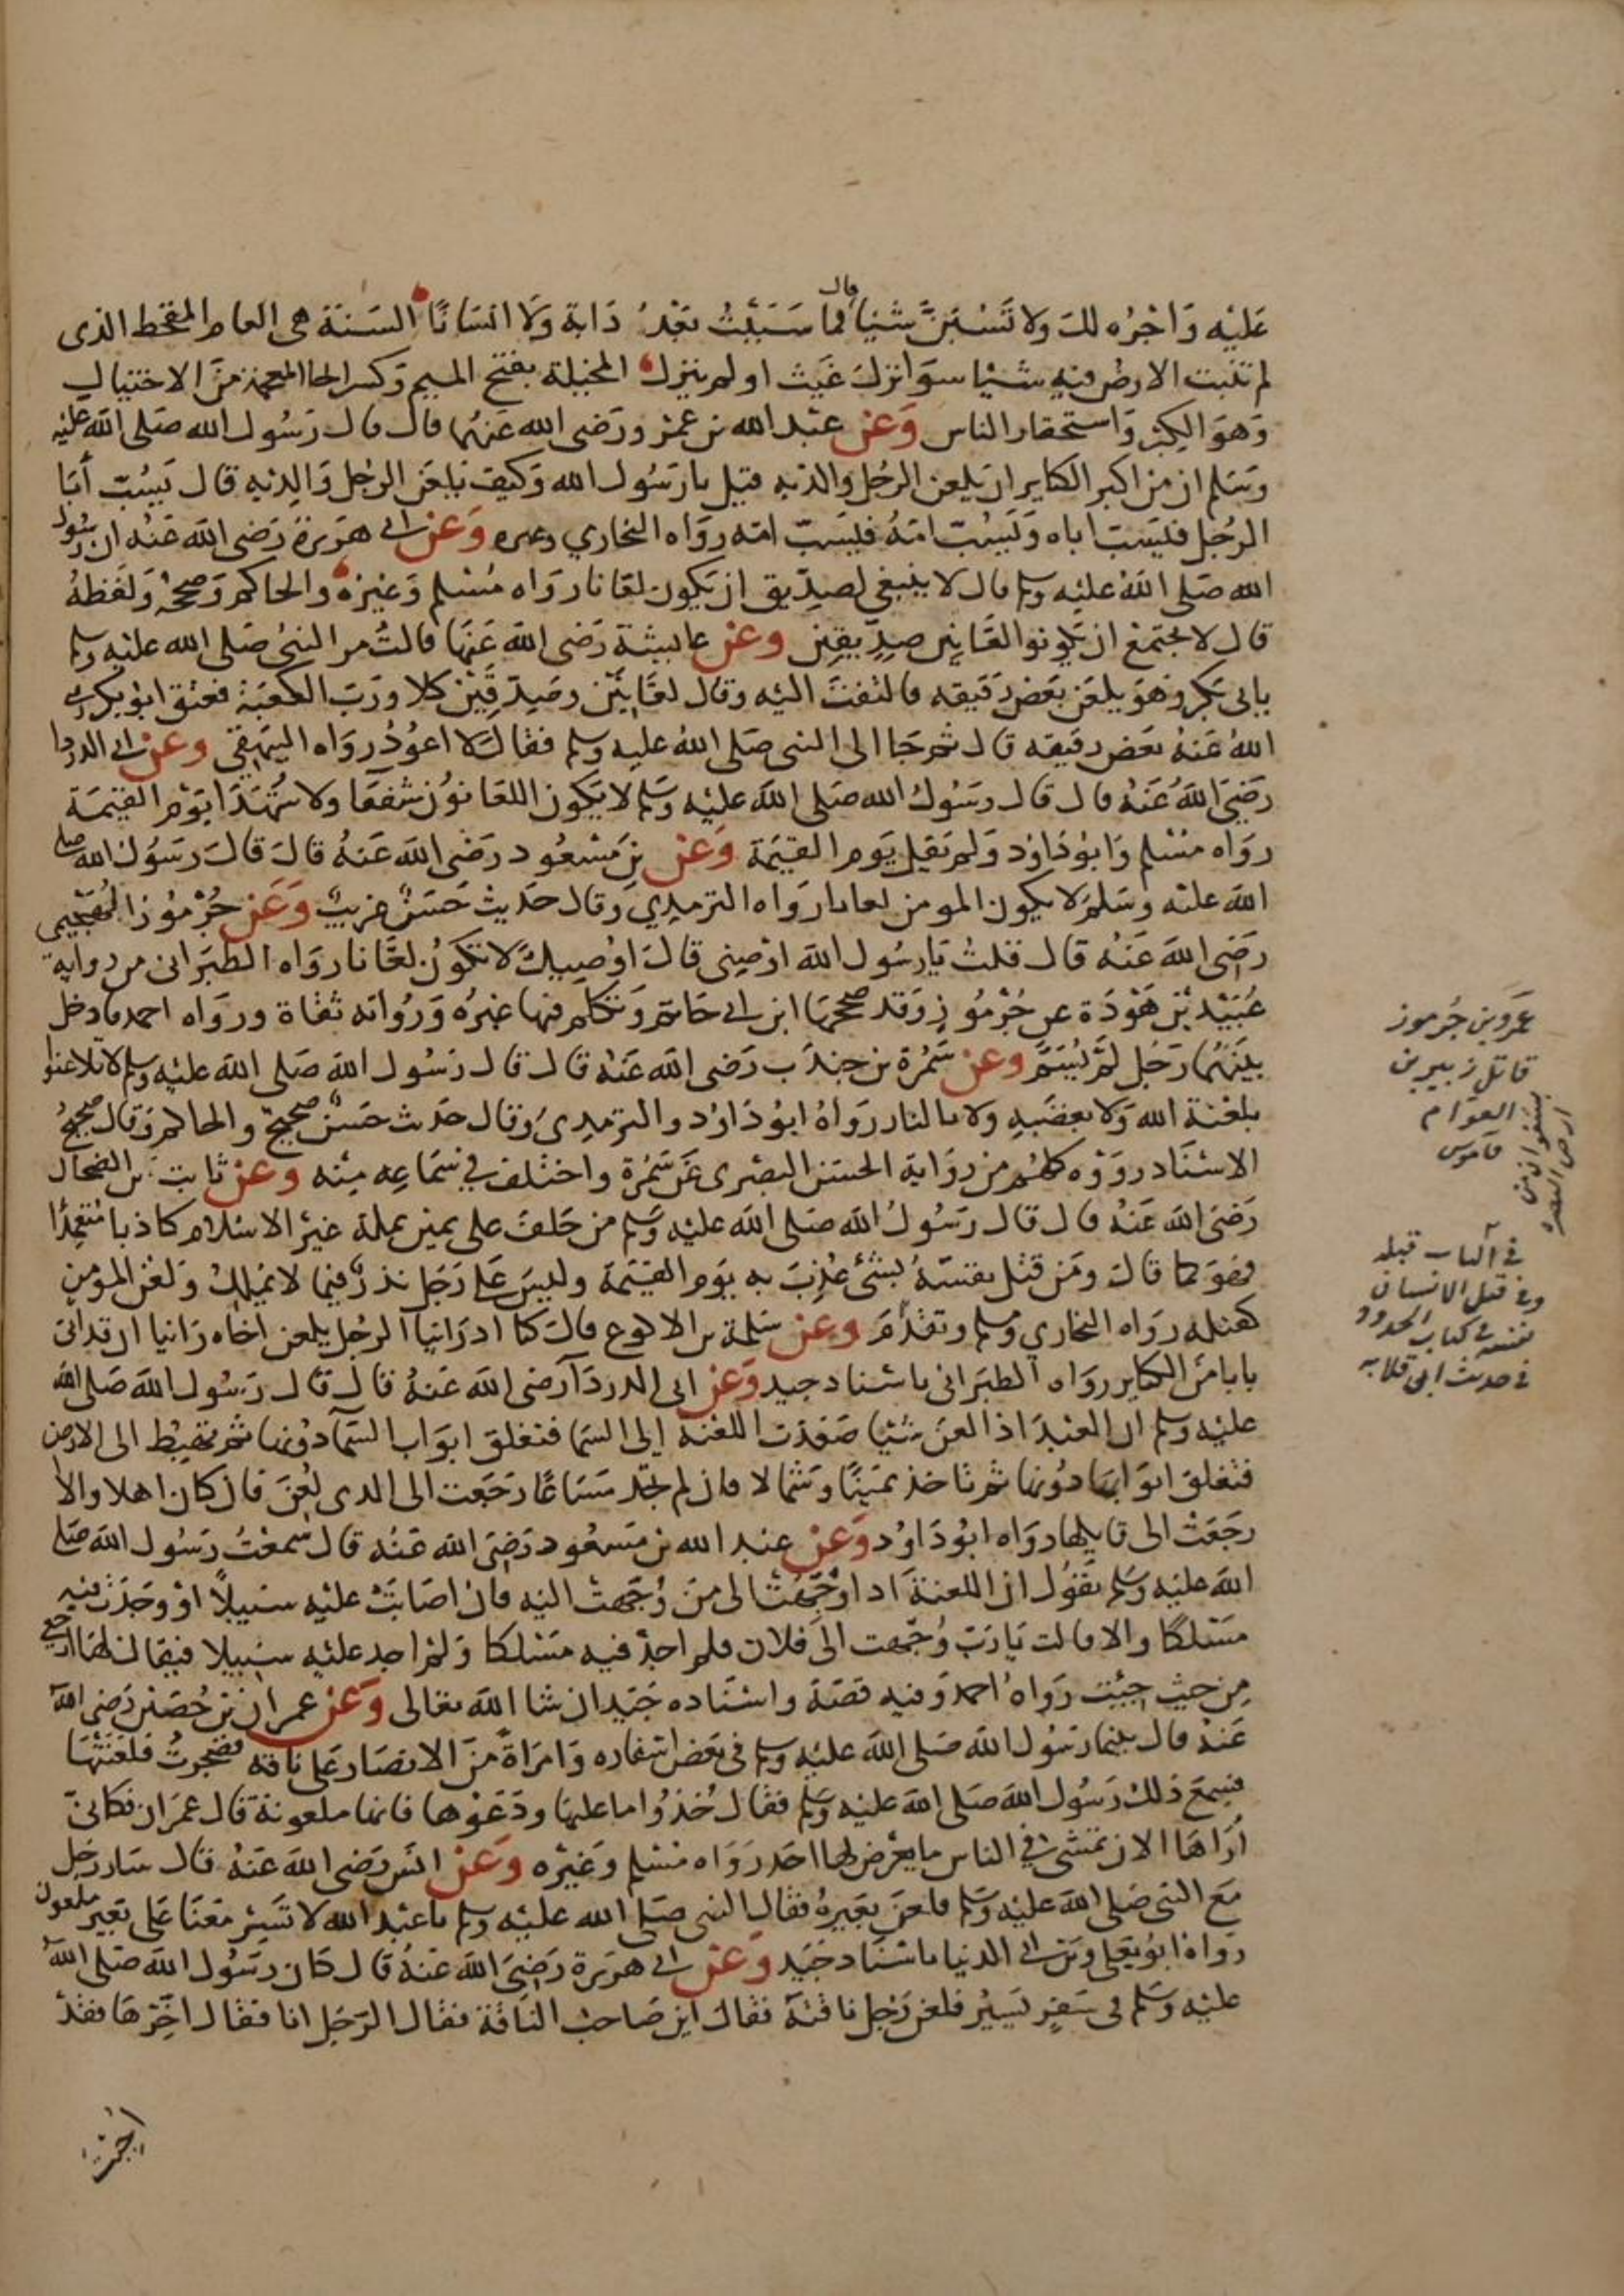 عَلَيْه وَاجْرُه لك ولا تَسُبَّنَّ شَيْا قال فما سَبَبْتُ بَعْدُ دَابة وَلَا انسَانًا السَنَة هى العام المقحط الذى
لم تنبت الارض فيه شيْا سوَا نزل غَيث او لم ينزل المخيلة بفتح الميم وَكسر الخا المعجمة منَ الاختيال
وَهوَ الكِبْر وَاستحقار الناس وَعَن عبْد الله بن عمرو رَضى الله عَنهُما قال قال رَسُول الله صَلى الله عليْه
وَسَلم ان من اكبر الكباير ان يلعن الرجُل والدَيه قيل يا رَسُول الله وَكيف يَلعَن الرجُل وَالِدَيْهِ قال يَسُبّ أبَا
الرجُل فيَسُبّ اباه وَيَسُبّ امّهُ فيَسُبّ امّه روَاه البخاري وغيره وَعَن ابى هرَيرَة رَضى اللهَ عَنْه ان رسُول
الله صَلى اللهُ عليْه وسلم قال لا ينبغى لصِدّيق ان يَكون لعّانا روَاه مُسْلم وَغيْره وَالحاكم وَصحّحَهُ وَلفظهُ
قال لا يَجتمع ان تكونوا لعَّانِين صِدِّيقِين وعن عايشة رَضى اللهَ عَنهَا قالتْ مر النبىُ صَلى الله عليْه وسلم
بابى بَكر وَهوَ يلعَن بَعْض رَقيقه فالتفتَ اليْه وقال لعَّانِيْن وصِدِّيقِيْن كلا ورَبّ الكعْبَة فعتق ابُو بكر رضى
اللهُ عَنهُ بَعض رقيقه قال ثم جَا الى النبى صَلى اللهُ عليه وسلم فقال لَا اعوُدُ روَاه البيهقى وعن ابى الدردا
رَضىَ اللهُ عَنهُ قال قال رسُولُ الله صَلى اللهَ عليْه وسَلم لا يكون اللعّانوُن شفعَا ولا شُهَدَا يَوْم القيمَة
روَاه مُسْلم وَابُو دَاوُد وَلم يَقل يَوم القيمَة وَعَن بن مَسْعُود رَضىَ اللهَ عَنهُ قالَ قالَ رسَوُل الله صلى
اللهَ عليْه وسَلمَ لا يكون المومن لعانا روَاه الترمذِي وَقال حَديث حَسَنٌ غريبٌ وَعَن جُرْمُوز الهُجَيْمى
رَضىَ اللهَ عَنْه قال قلتُ يَا رسُول اللهَ اوْصِينى قالَ اوُصِيكَ لَا تكوُن لعَّانا روَاه الطبَرانى من رواية
عُبَيْد بْن هَوْذَة عن جُرْمُوز وَقد صححهَا ابن ابى حَاتم وَتكلم فيها غيْرُه وَرُوَاته ثقاة ورواه احمد فادخل
بيْنَهُما رَجُل لَمْ يُسَمَّ وعن سَمُرَة بن جندَب رَضى اللهَ عَنهُ قال قال رَسُول اللهَ صَلى اللهَ عليْه وسلم لا تلاعَنوا
بلعْنة الله وَلا بغضَبِه ولا بالنار روَاهُ ابوُ دَاوُد والترمِذىُ وقال حَديث حَسَنٌ صحيحٌ والحاكم وَقال صحيحُ
الاسْنَاد روَوْه كلهُم من روَاية الحسَن البصْرى عَن سَمُرَة واختلف فى سَمَاعِه مِنْه وعَن ثابت بن الضحاك
رَضىَ اللهَ عَنْهُ قال قال رسُولُ اللهَ صَلى اللهَ عليْه وسَلم من حَلفَ على يمينٍ بملة غيْرَ الاسْلام كاذبا مُتعَمِّدًا
فهوَ كما قالَ ومَن قتلَ نفسَهُ بشَىْ عُذبَ به يوَم القيمَة وليسَ عَلى رَجل نذرٌ فيما لا يملكُ وَلعْن المؤمن
كقتله روَاه البخاري ومُسلم وتقدَّمَ وعن سَلمة بن الاكوع قالَ كنا اذ رَايْنا الرجُل يلعن اخاه رَاينا ان قد اتى
بابا منَ الكباير روَاه الطبَرانى باسْناد جيد وَعَن ابى الدردَا رَضى الله عَنهُ قالَ قال رَسُول الله صَلى الله
عليْه وسلم ان العَبْدَ اذا لعنَ شَيْا صَعِدَت اللعْنَة إلى السَما فتغلق ابوَاب السَّمَا دُونها ثم تهبِط الى الارض
فتغلق ابوَابهَا دوُنها ثم تاخذ يَمينًا وَشمالا فان لم تجد مسَاغًا رَجَعَت الى الذى لُعِنَ فان كان اهلا والا
رجَعَتْ الى قايلها روَاه ابوُ دَاوُد وعَن عبد الله بن مَسعُود رَضىَ اللهَ عَنْه قال سَمعْتُ رَسُول اللهَ صَلى
اللهَ عليْه وسَلم يَقوُل ان اللعنةَ اذا وُجِّهَتْ الى منَ وُجِّهت اليْه فان اصَابَتْ عليْه سَبيلًا اوْ وَجَدَتْ فيه
مسْلكًا والا قالت يَا رَبّ وُجِّهت الى فلان فلم اجدْ فيه مَسْلكا وَلمْ اجد عليْه سَبيلا فيقال لهَا ارجعى
مِن حيثِ جِئْتِ رَوَاهُ احمد وَفيه قصّة واسْنَاده جَيّد ان شا اللهَ تعالى وَعَن عمران بْن حُصَيْن رَضى الله
عَنْهُ قال بينما رَسُول اللهَ صَلى اللهَ عليْه وسلم فى بَعْض اسْفاره وَامرَاة منَ الانصَار عَلى نافة فضجرتْ فلعَنَتْهَا
فسَمعَ ذلك رَسُول اللهَ صَلى اللهَ عليْه وسَلم فقال خُذوُا ما عليها ودَعَوْها فانها ملعونة قال عمرَان فكانىّ
أرَاهَا الان تمشى فى الناس ما يعْرض لها احَد رَوَاه مُسْلم وغيْره وَعَن انَس رَضىَ اللهَ عَنهُ قال سَار رَجل
مَعَ النبى صَلى اللهَ عليْه وسَلم فلعَن بَعيرَهُ فقال النبى صَلى الله عليْه وسلم يا عبْد الله لا تسِرْ معَنا عَلى بَعير ملعون
روَاهُ ابوُ يَعْلى وبن ابى الدنيا باسْنَاد جَيّد وعَن ابى هرَيرَة رَضىَ اللهَ عَنهُ قال كان رسَوُل اللهَ صَلى اللهُ
عليْه وسَلم فى سَفرٍ يَسيرُ فلعَن رَجل ناقتهَ فقالَ اين صَاحبُ الناقة فقال الرّجُل انا فقال اخِّرهَا فقدْ
اجبت
عَمَرو بن جُرموز
قاتل زبير بن
العوام
قاموس
فى الباب قبله
وفى قتل الانسان
نفسه فى كتاب الحدود
فى حديث ابى قلابه